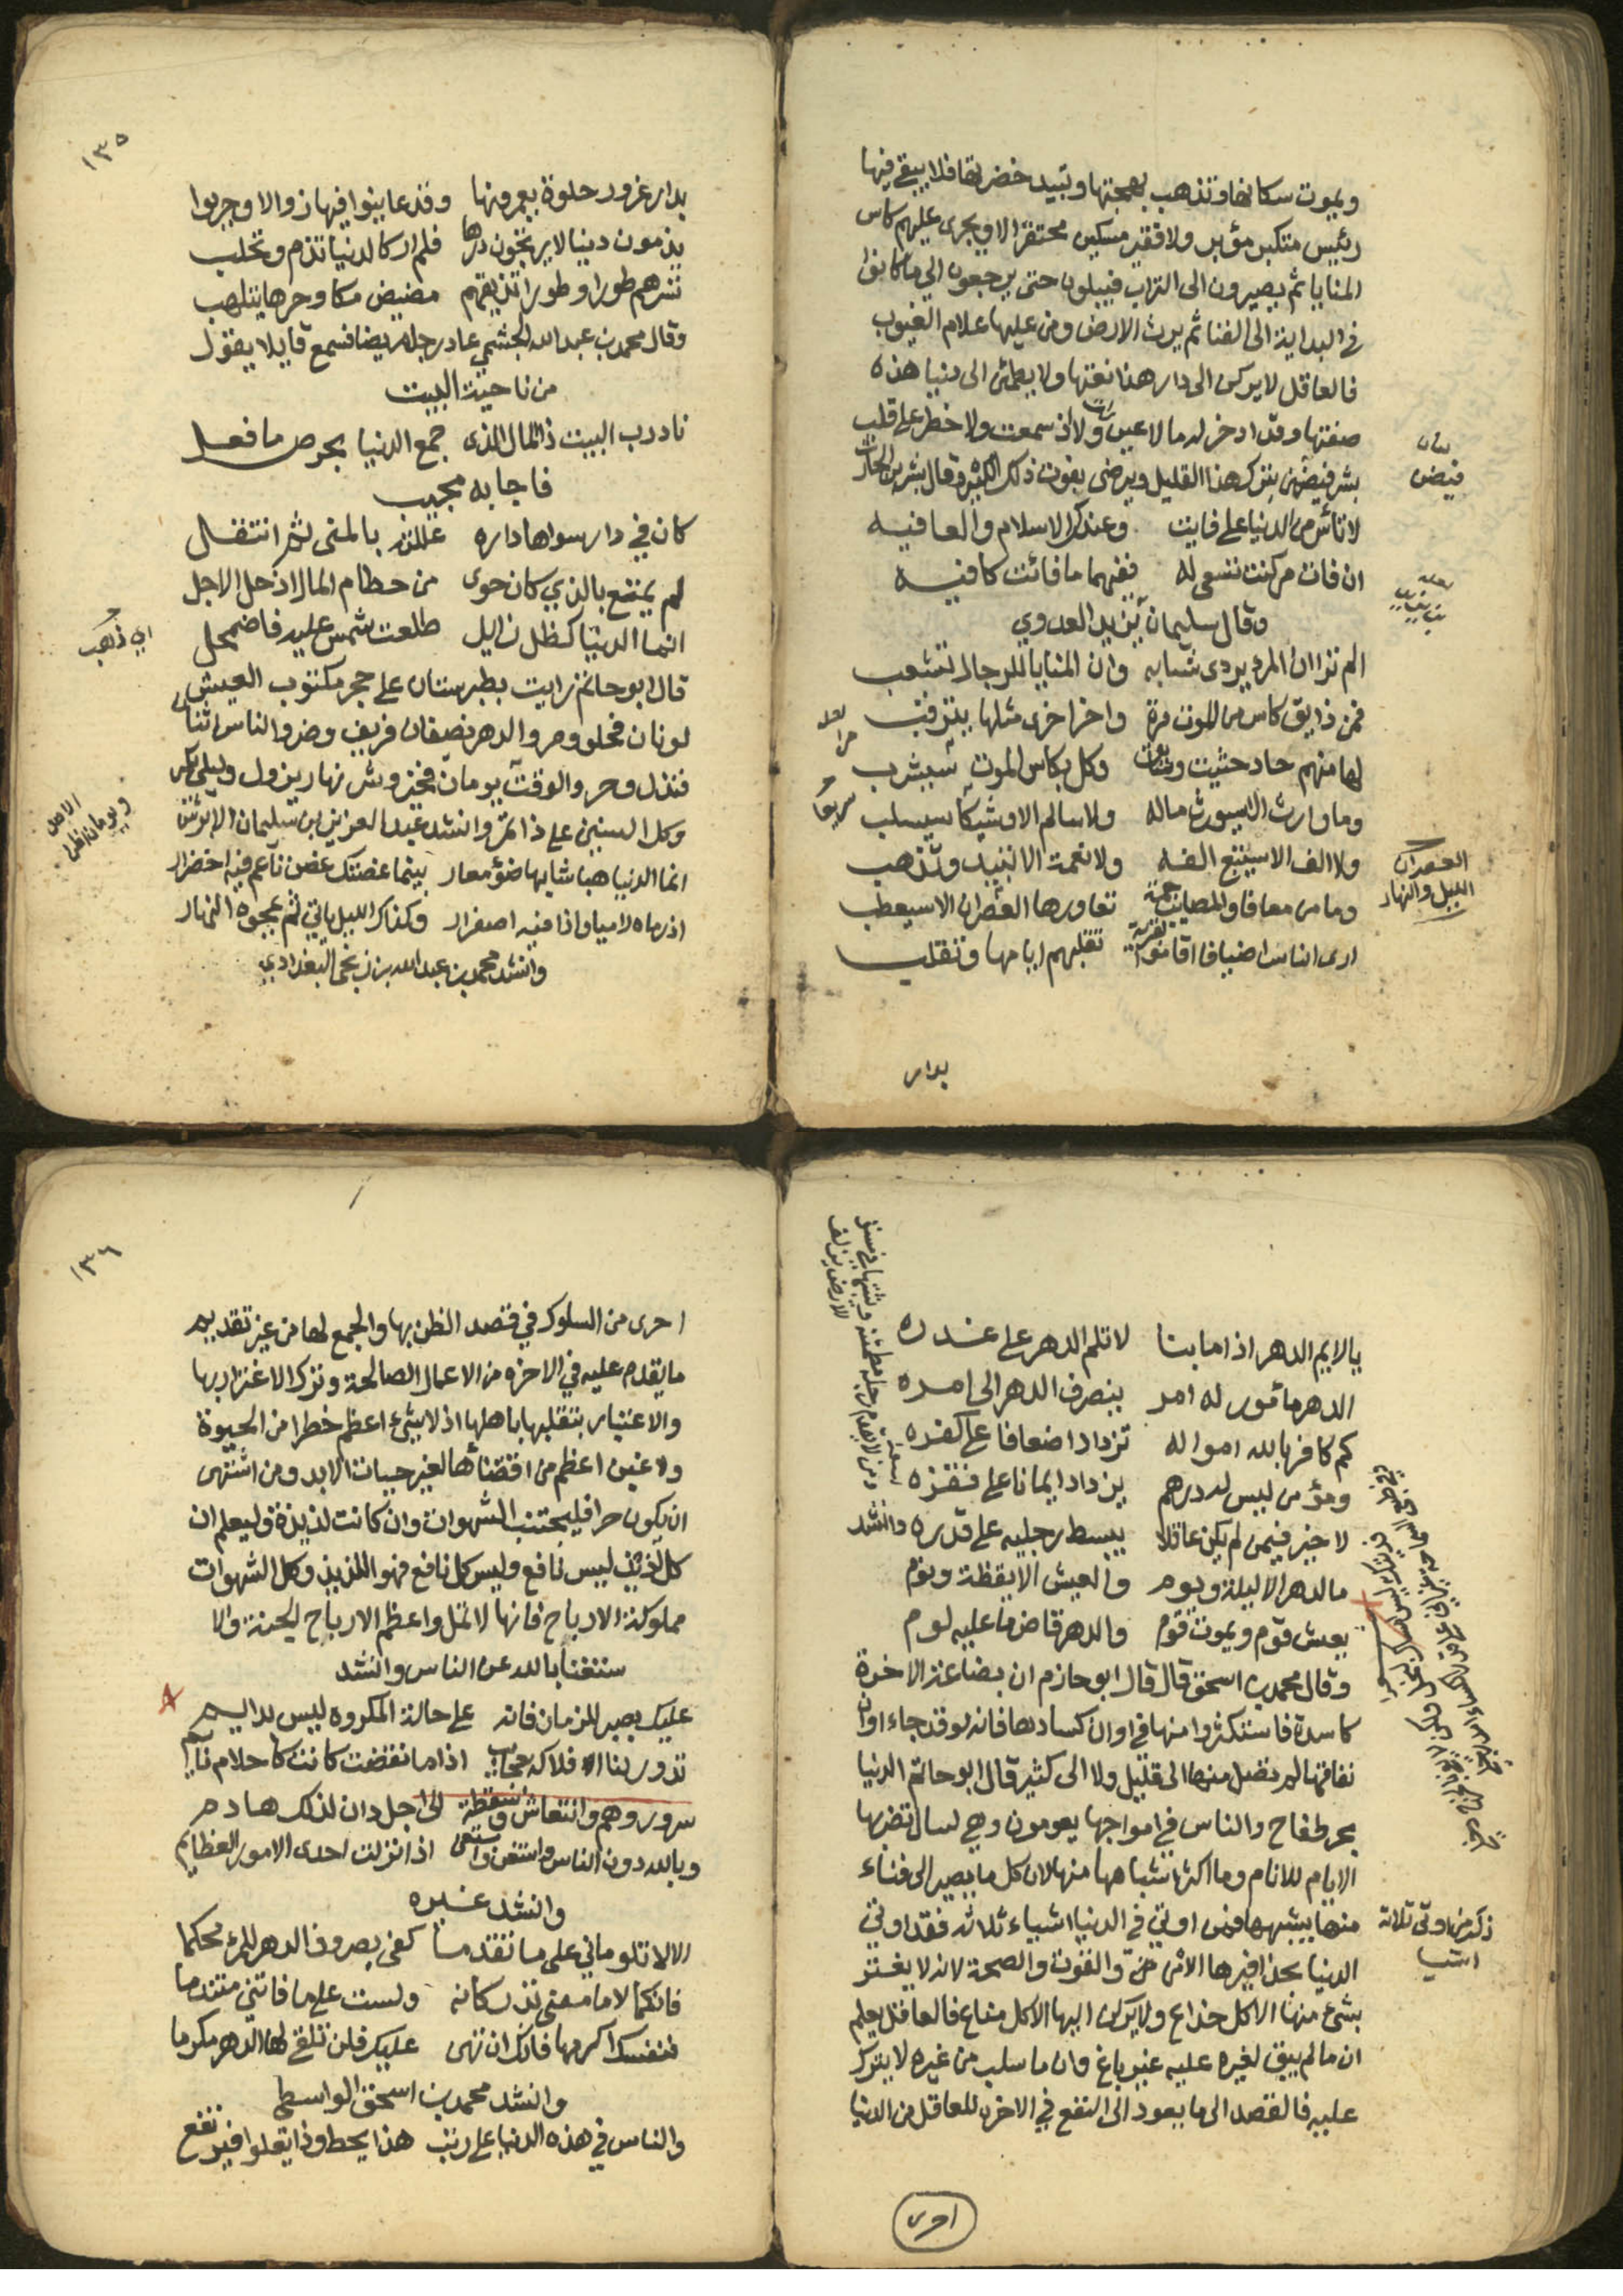 ويموت سكانها وتذهب بهجتها وتبيد خضرتها فلا يبقى فيها
رئيس متكبر مؤمر ولا فقير مسكين محتقر الا ويجرى عليهم كاس
المنايا ثم يصيرون الى التراب فيبلون حتى يرجعون الى ما كانوا
في البداية الى الفنا ثم يرث الارض ومن عليها علام الغيوب
فالعاقل لا يركن الى دار هذا نعتها ولا يطمئن الى دنيا هذه
صفتها وقد ادخر له ما لا عين رات ولا اذن سمعت ولا خطر على قلب
بشر فيضن بترك هذا القليل ويرضى بفوت ذلك الكثير وقال بشر بن الحارث
لا تاس من الدنيا على فايت وعندك الاسلام والعافيه
ان فات من كنت تسعى له ففيهما ما فائت كافيه
وقال سليمان بن يزيد العدوي
الم تر ان المرء يردى شبابه وان المنايا للرجال تشعب
فمن ذايق كاس من الموت مرة واخر اخرى مثلها يترقب
لها منهم حاد حثيث وسائق وكل بكاس الموت سيشرب
وما وارث الا سيورث ماله ولا سالم الا وشيكا سيسلب
ولا الف الا سيتبع الفه ولا نعمة الا تبيد وتذهب
وما من معافا والمصايب جمة تعاورها العصران الا سيعطب
ارى الناس اضيافا اقاموا بغربة تقلبهم ايامها وتقلب
بيان
فيض
العصران
الليل والنهار
سريعا
بدار
١٣٥
بدار غرور حلوة يعمرونها وقد عاينوا فيها زوالا وجربوا
يذمون دنيا لا يريحون درها فلم ار كالدنيا تذم وتحلب
تسرهم طورا وطورا تذيقهم مضيض مكاو حرها يتلهب
وقال محمد بن عبد الله الجشمي عاد رجل مريضا فسمع قايلا يقول
من ناحية البيت
ناد رب البيت ذا المال الذى جمع الدنيا بحرص ما فعل
فاجابه مجيب
كان في دار سواها داره عللته بالمنى ثم انتقل
لم يمتع بالذي كان حوى من حطام المال اذ حل الاجل
انما الدنيا كظل زايل طلعت شمس عليه فاضمحل
قال ابو حاتم رايت بطبرستان على حجر مكتوب العيش
لونان فحلو ومر والدهر نصفان فريف وضر والناس اثنان
فنذل وحر والوقت يومان فخير وشر نهار يزول وليل يكر
وكل السنين على ذا تمر وانشد عبد العزيز بن سليمان الابرش
انما الدنيا هبا شابها ضؤ معار بينما غصنك غصن ناعم فيه اخضرار
اذ رماه لاميا واذا فيه اصفرار وكذاك الليل ياتي ثم يمحوه النهار
وانشد محمد بن عبد الله بن زنجي البغدادي
اي ذهب
يا لايم الدهر اذا ما بنا لا تلم الدهر على غدره
الدهر مامور له امر ينصرف الدهر الى امره
كم كافر بالله امواله تزداد اضعافا على كفره
ومؤمن ليس له درهم يزداد ايمانا على فقره
لا خير فيمن لم يكن عاقلا يبسط رجليه على قدره وانشد
ما الدهر الا ليلة ويوم والعيش الا يقظة ونوم
يعيش قوم ويموت قوم والدهر قاض ما عليه لوم
وقال محمد بن اسحق قال قال ابو حازم ان بضاعة الاخرة
كاسدة فاستكثروا منها في اوان كسادها فانه لو قد جاء اوان
نفاقها لم تصل منها الى قليل ولا الى كثير قال ابو حاتم الدنيا
بحر طفاح والناس في امواجها يعومون وهي لسال تضربها
الايام للانام وما اكثر اشباهها منها لان كل ما يصير الى فناء
منها يشبهها ومن اوتي في الدنيا اشياء ثلاثه فقد اوتي
الدنيا بحذافيرها الامن والقوت والصحة لانه لا يغتر
بشئ منها الا كل خداع ولا يركن اليها الا كل مناع فالعاقل يعلم
ان ما لم يبق لغيره عليه غير باغ وان ما سلب من غيره لا يترك
عليه فالقصد الى ما يعود الى النفع في الاخرة للعاقل من الدنيا
ذكر من اوتى ثلاثة
اشيا
احرى
١٣٦
احرى من السلوك في قصد الظن بها والجمع لها من غير تقديم
ما يقدم عليه في الاخره من الاعمال الصالحة وترك الاغترار بها
والاعتبار بتقلبها باهلها اذ لا شئ اعظم خطرا من الحيوة
ولا غبن اعظم من افنائها لغير حيات الابد ومن اشتهى
ان يكون حرا فليجتنب الشهوات وان كانت لذيذة وليعلم ان
كل لذيذ ليس نافع وليس كل نافع فهو اللذيذ وكل الشهوات
مملوكة الا رباح فانها لا تمل واعظم الارباح الجنة والا
ستغنا بالله عن الناس وانشد
عليك بصبر للزمان فانه على حالة المكروه ليس بدايم
تدور بنا افلاكه بعجايب اذا ما تقضت كانت كاحلام نايم
سرور وهم وانتعاش وسقطة الى اجل دان لذلك هادم
وبالله دون الناس فاستغن واستعن اذا نزلت احدى الامور العظايم
وانشد غيره
الا لا تلوماني على ما تقدما كفى بصروف الدهر للمرء محكما
فانكما لا ما مضى تدركانه ولست على ما فاتني متندما
فنفسك اكرمها فانك ان تهن عليك فلن تلقى لها الدهر مكرما
وانشد محمد بن اسحق الواسطي
والناس في هذه الدنيا على رتب هذا يحط وذا يعلوا فيرتفع